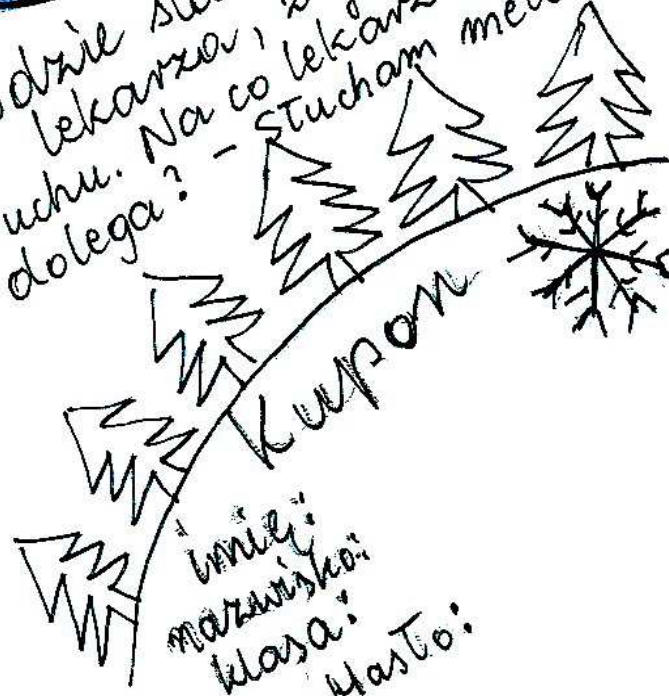 lekarza,
uchu. Na co lekarz
dolega? - Słucham
Kupon
imię:
nazwisko:
klasa:
Hasło: